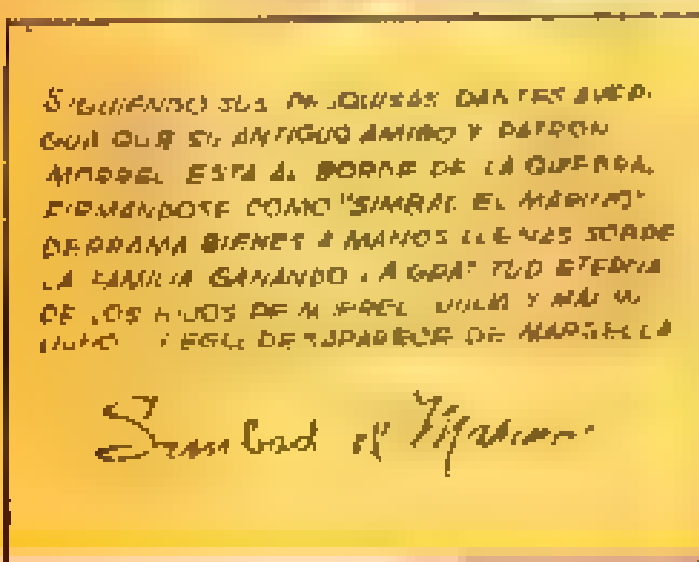 SIGUIENDO SUS PESQUISAS DANTES AVERI-
GUA QUE SU ANTIGUO AMIGO Y PATRON
MORREL ESTA AL BORDE DE LA QUIEBRA.
FIRMANDOSE COMO "SIMBAD EL MARINO"
DERRAMA BIENES A MANOS LLENAS SOBRE
LA FAMILIA GANANDO LA GRATITUD ETERNA
DE LOS HIJOS DE MORREL JULIA Y MAXIMI
LIANO. LUEGO DESAPARECE DE MARSELLA
Simbad el Marino